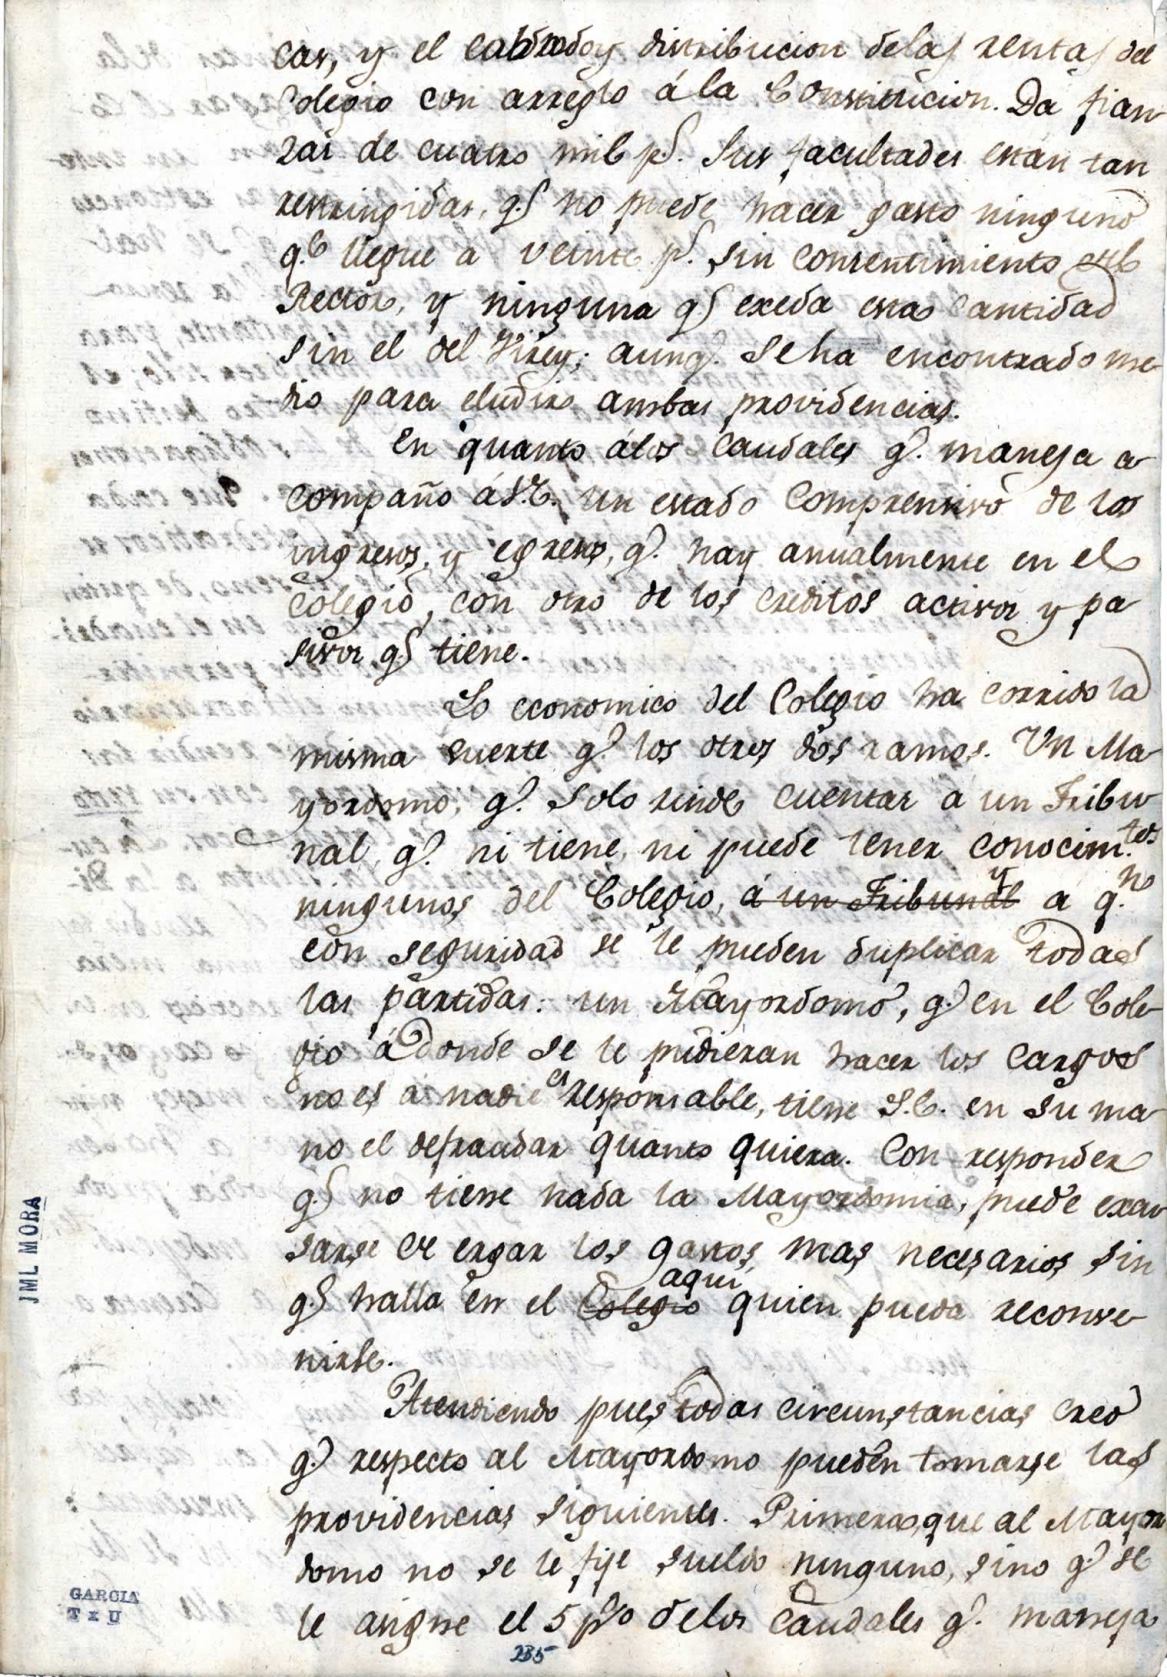 cas, y el cobro y distribucion de las rentas del
Colegio con arreglo á la Constitucion. Da fian-
zas de cuatro mil p.s Sus facultades estan tan
restringidas, q.e no puede hacer gasto ninguno
q.e llegue a veinte p.s sin consentimiento del
Rector, y ninguna q.e exeda esta cantidad
sin el del Virey; aunq.e se ha encontrado me-
dio para eludir ambas providencias.
En quanto álos caudales q.e maneja a-
compaño á V.E. un estado comprensivo de los
ingresos, y egresos, q.e hay anualmente en el
Colegio, con otro de los creditos activos y pa-
sivos q.e tiene.
Lo economico del Colegio ha corrido la
misma suerte q.e los otros dos ramos. Un Ma-
yordomo, q.e solo rinde cuentas a un Tribu-
nal, q.e ni tiene, ni puede tener conocim.tos
ningunos del Colegio, á un Tribunal y a q.n
con seguridad se le pueden duplicar todas
las partidas: un Mayordomo, q.e en el Cole-
gio á donde se le pudieran hacer los cargos
no es a nadie es responsable, tiene S.E. en su ma-
no el defraudar quanto quiera. Con responder
q.e no tiene nada la Mayordomia, puede excu-
sarse de ergar los gastos mas necesarios sin
q.e halla en el Colegio aqui quien pueda reconve-
nirle.
Atendiendo pues todas circunstancias creo
q.e respecto al Mayordomo pueden tomarse las
providencias siguientes. Primera, que al Mayor-
domo no se le fije sueldo ninguno, sino q.e se
le asigne el 5 p%o delos caudales q.e maneja
235
JML MORA
GARCIA
T x U